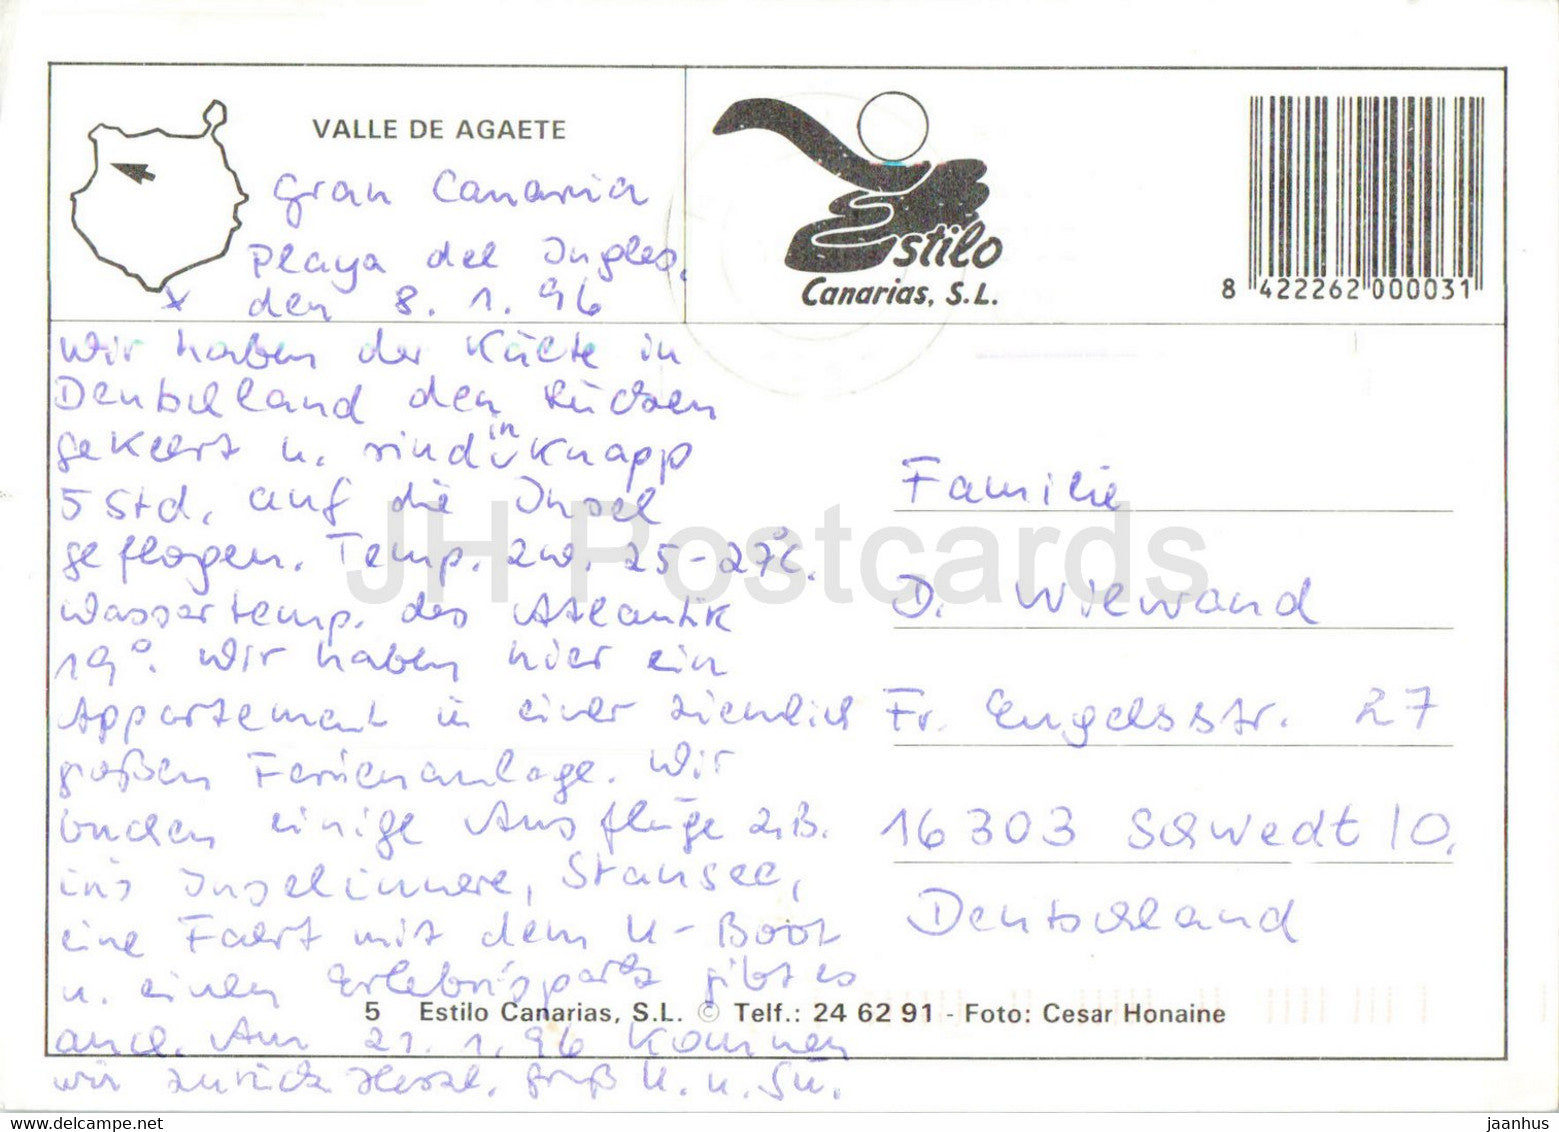 VALLE DE AGAETE
Gran Canaria
Playa del Ingles,
den 8. 1. 96
Wir haben der Kälte in
Deutschland den Rücken
gekeert u. sind in knapp
5 Std. auf die Insel
geflogen. Temp. zw. 25-27°C.
Wassertemp. des Atlantik
19°. Wir haben hier ein
Appartement in einer ziemlich
großen Ferienanlage. Wir
buchen einige Ausflüge z.B.
ins Inselinnere, Stausee,
eine Fahrt mit dem U-Boot
u. einen Erlebnispark gibt es
auch. Am 21. 1. 96 kommen
wir zurück. Herzl. Gruß U. u. Sü.
Estilo
Canarias, S.L.
8 422262 000031
Familie
D. Wiewand
Fr. Engelsstr. 27
16303 Schwedt/O.
Deutschland
5 Estilo Canarias, S.L. © Telf.: 24 62 91 - Foto: Cesar Honaine
JH Postcards
www.delcampe.net
jaanhus